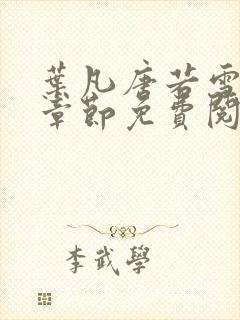 葉凡唐若雪
章節免費閱
李武學